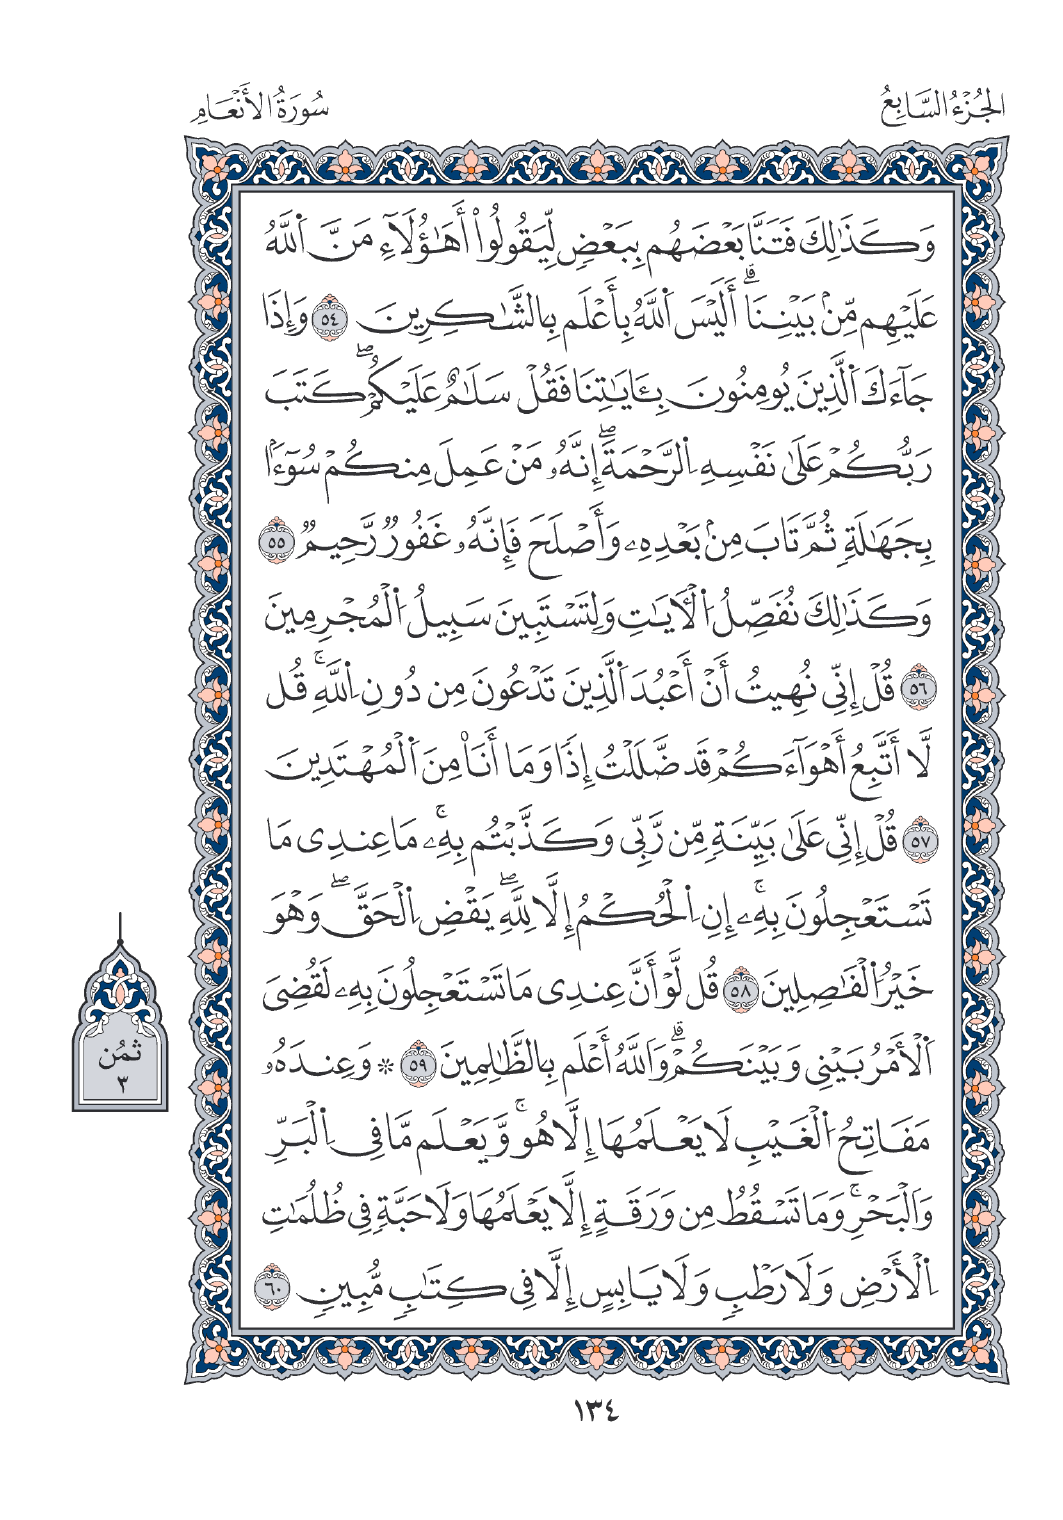 الجُزْءُ السَّابِعُ
سُورَةُ الأَنْعَامِ
وَكَذَٰلِكَ فَتَنَّا بَعْضَهُم بِبَعْضٍ لِّيَقُولُوٓاْ أَهَٰٓؤُلَآءِ مَنَّ اَ۬للَّهُ
عَلَيْهِم مِّنۢ بَيْنِنَآۗ أَلَيْسَ اَ۬للَّهُ بِأَعْلَم بِالشَّٰكِرِينَ ٥٤ وَإِذَا
جَآءَكَ اَ۬لَّذِينَ يُومِنُونَ بِـَٔايَٰتِنَا فَقُلْ سَلَٰمٌ عَلَيْكُمْۖ كَتَبَ
رَبُّكُمْ عَلَىٰ نَفْسِهِ اِ۬لرَّحْمَةَۖ إِنَّهُۥ مَنْ عَمِلَ مِنكُمْ سُوٓءَۢا
بِجَهَٰلَةٍ ثُمَّ تَابَ مِنۢ بَعْدِهِۦ وَأَصْلَحَ فَإِنَّهُۥ غَفُورٌ رَّحِيمٌ ٥٥
وَكَذَٰلِكَ نُفَصِّلُ اُ۬لْأٓيَٰتِ وَلِتَسْتَبِينَ سَبِيلُ اُ۬لْمُجْرِمِينَ
٥٦ قُلْ إِنِّي نُهِيتُ أَنْ أَعْبُدَ اَ۬لَّذِينَ تَدْعُونَ مِن دُونِ اِ۬للَّهِۚ قُل
لَّا أَتَّبِعُ أَهْوَآءَكُمْ قَد ضَّلَلْتُ إِذٗا وَمَا أَنَا۠ مِنَ اَ۬لْمُهْتَدِينَ
٥٧ قُلْ إِنِّي عَلَىٰ بَيِّنَةٍ مِّن رَّبِّي وَكَذَّبْتُم بِهِۦۚ مَا عِندِي مَا
تَسْتَعْجِلُونَ بِهِۦۚ إِنِ اِ۬لْحُكْمُ إِلَّا لِلَّهِۖ يَقْضِ اِ۬لْحَقَّۖ وَهْوَ
خَيْرُ اُ۬لْفَٰصِلِينَ ٥٨ قُل لَّوْ أَنَّ عِندِي مَا تَسْتَعْجِلُونَ بِهِۦ لَقُضِيَ
اَ۬لْأَمْرُ بَيْنِي وَبَيْنَكُمْۗ وَاَللَّهُ أَعْلَم بِالظَّٰلِمِينَ ٥٩ ۞ وَعِندَهُۥ
ثمُن
٣
مَفَاتِحُ اُ۬لْغَيْبِ لَا يَعْلَمُهَا إِلَّا هُوۚ وَّيَعْلَم مَّا فِي اِ۬لْبَرِّ
وَالْبَحْرِۚ وَمَا تَسْقُطُ مِن وَرَقَةٍ إِلَّا يَعْلَمُهَا وَلَا حَبَّةٍ فِي ظُلُمَٰتِ
اِ۬لْأَرْضِ وَلَا رَطْبٍ وَلَا يَابِسٍ إِلَّا فِي كِتَٰبٍ مُّبِينٍ ٦٠
١٣٤